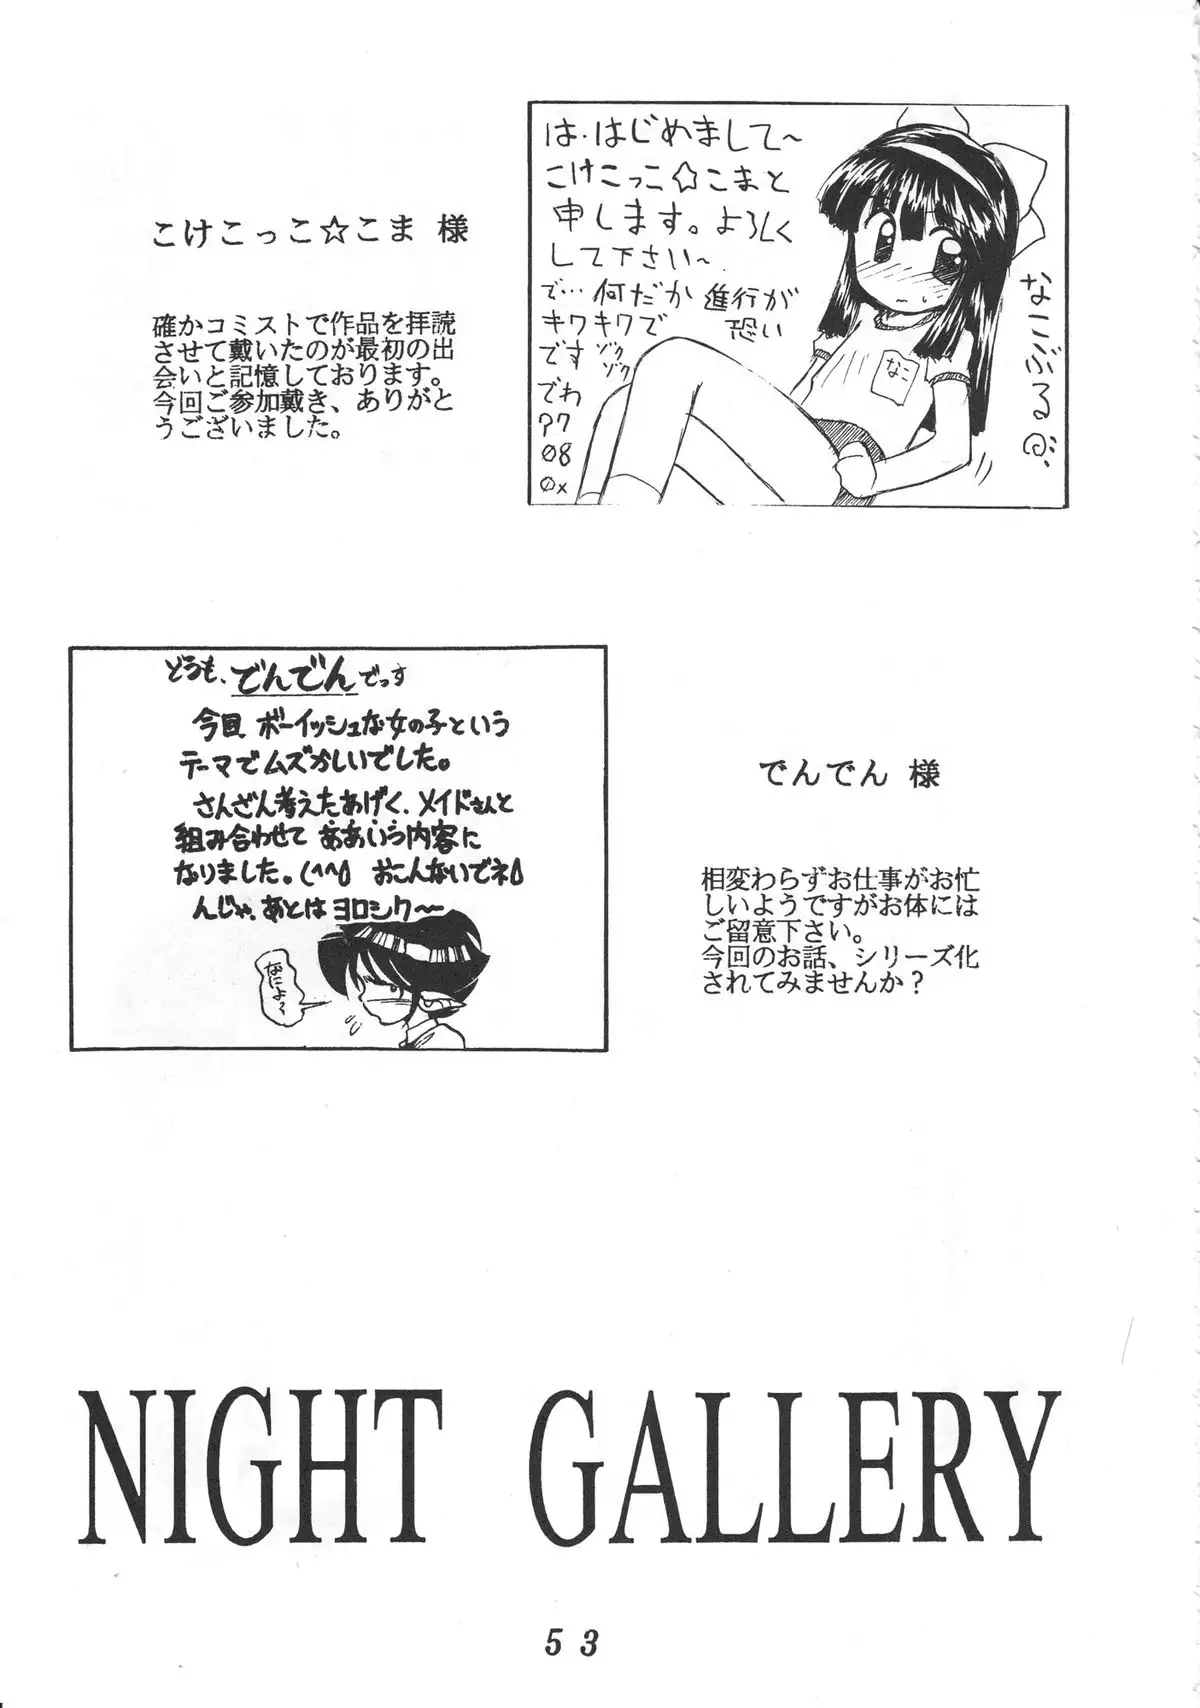 こけこっこ☆こま 様
確かコミストで作品を拝読
させて戴いたのが最初の出
会いと記憶しております。
今回ご参加戴き、ありがと
うございました。
は・はじめまして～
こけこっこ☆こまと
申します。よろしく
して下さい～
で…何だか進行が
キワキワで恐い
ですゾクゾク
でわ
97
08
0x
なこ
なこぶる@
どうも、でんでんでっす
今回、ボーイッシュな女の子という
テーマでムズかしいでした。
さんざん考えたあげく、メイドさんと
組み合わせて ああいう内容に
なりました。(^^; おこんないでネ
んじゃ、あとはヨロシク～
なによぅ
でんでん 様
相変わらずお仕事がお忙
しいようですがお体には
ご留意下さい。
今回のお話、シリーズ化
されてみませんか？
NIGHT GALLERY
53